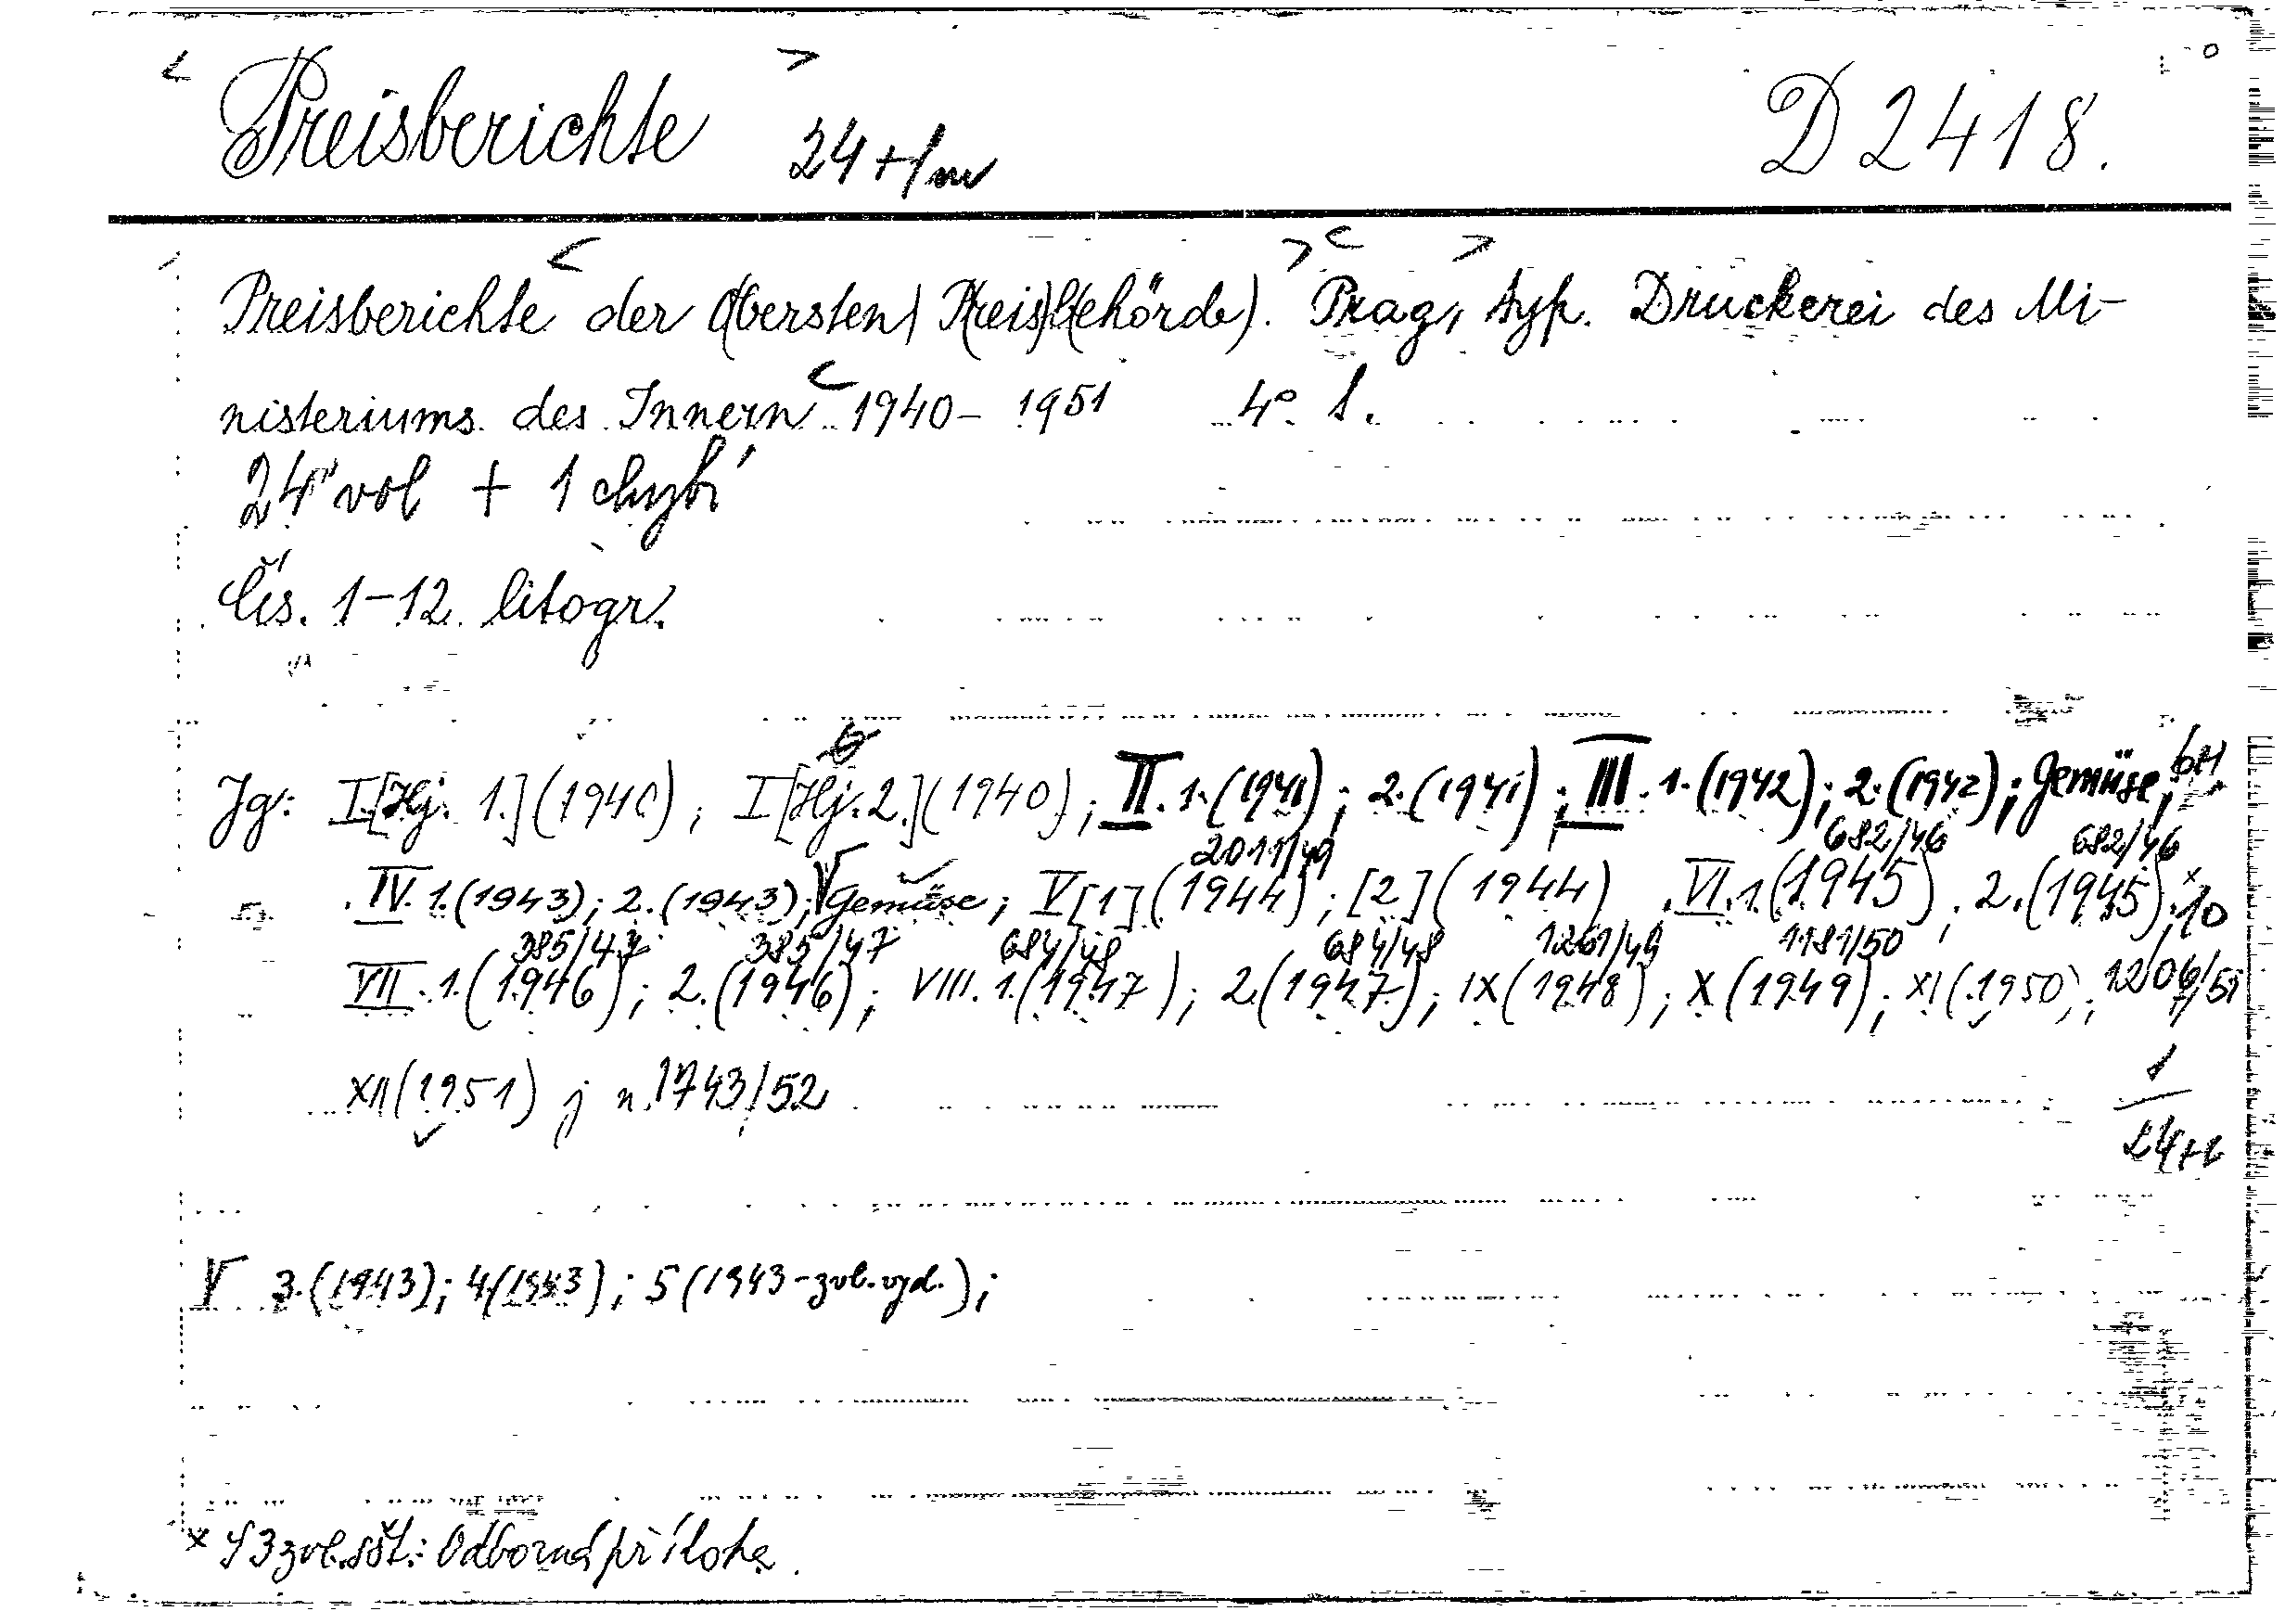 < Preisberichte > 24 + 1 m D 2418.
Preisberichte der O(bersten) P(reis)b(ehörde). Prag, typ. Druckerei des Mi-
nisteriums des Innern 1940- 1951 4°. l.
24 vol + 1 chybí
Čís. 1-12. litogr.
Jg: I.[Hj. 1.](1940); I[Hj. 2.](1940); II. 1. (1941); 2. (1941); III. 1. (1942); 2. (1942); Gemüse;
2011/49 682/46 682/46
IV. 1. (1943); 2. (1943); V Gemüse; V[1](1944); [2](1944) VI. 1. (1945); 2. (1945); x 10
385/47 385/47 684/48 684/48 1261/49 1181/50
VII. 1. (1946); 2. (1946); VIII. 1. (1947); 2. (1947); IX (1948); X (1949); XI (1950); 1206/51
XII (1951) j n. 1743/52
1
24+1
V 3. (1943); 4 (1943); 5 (1943 - zvl. vyd.);
x S 3 zvl. sšt.: Odborná příloha.